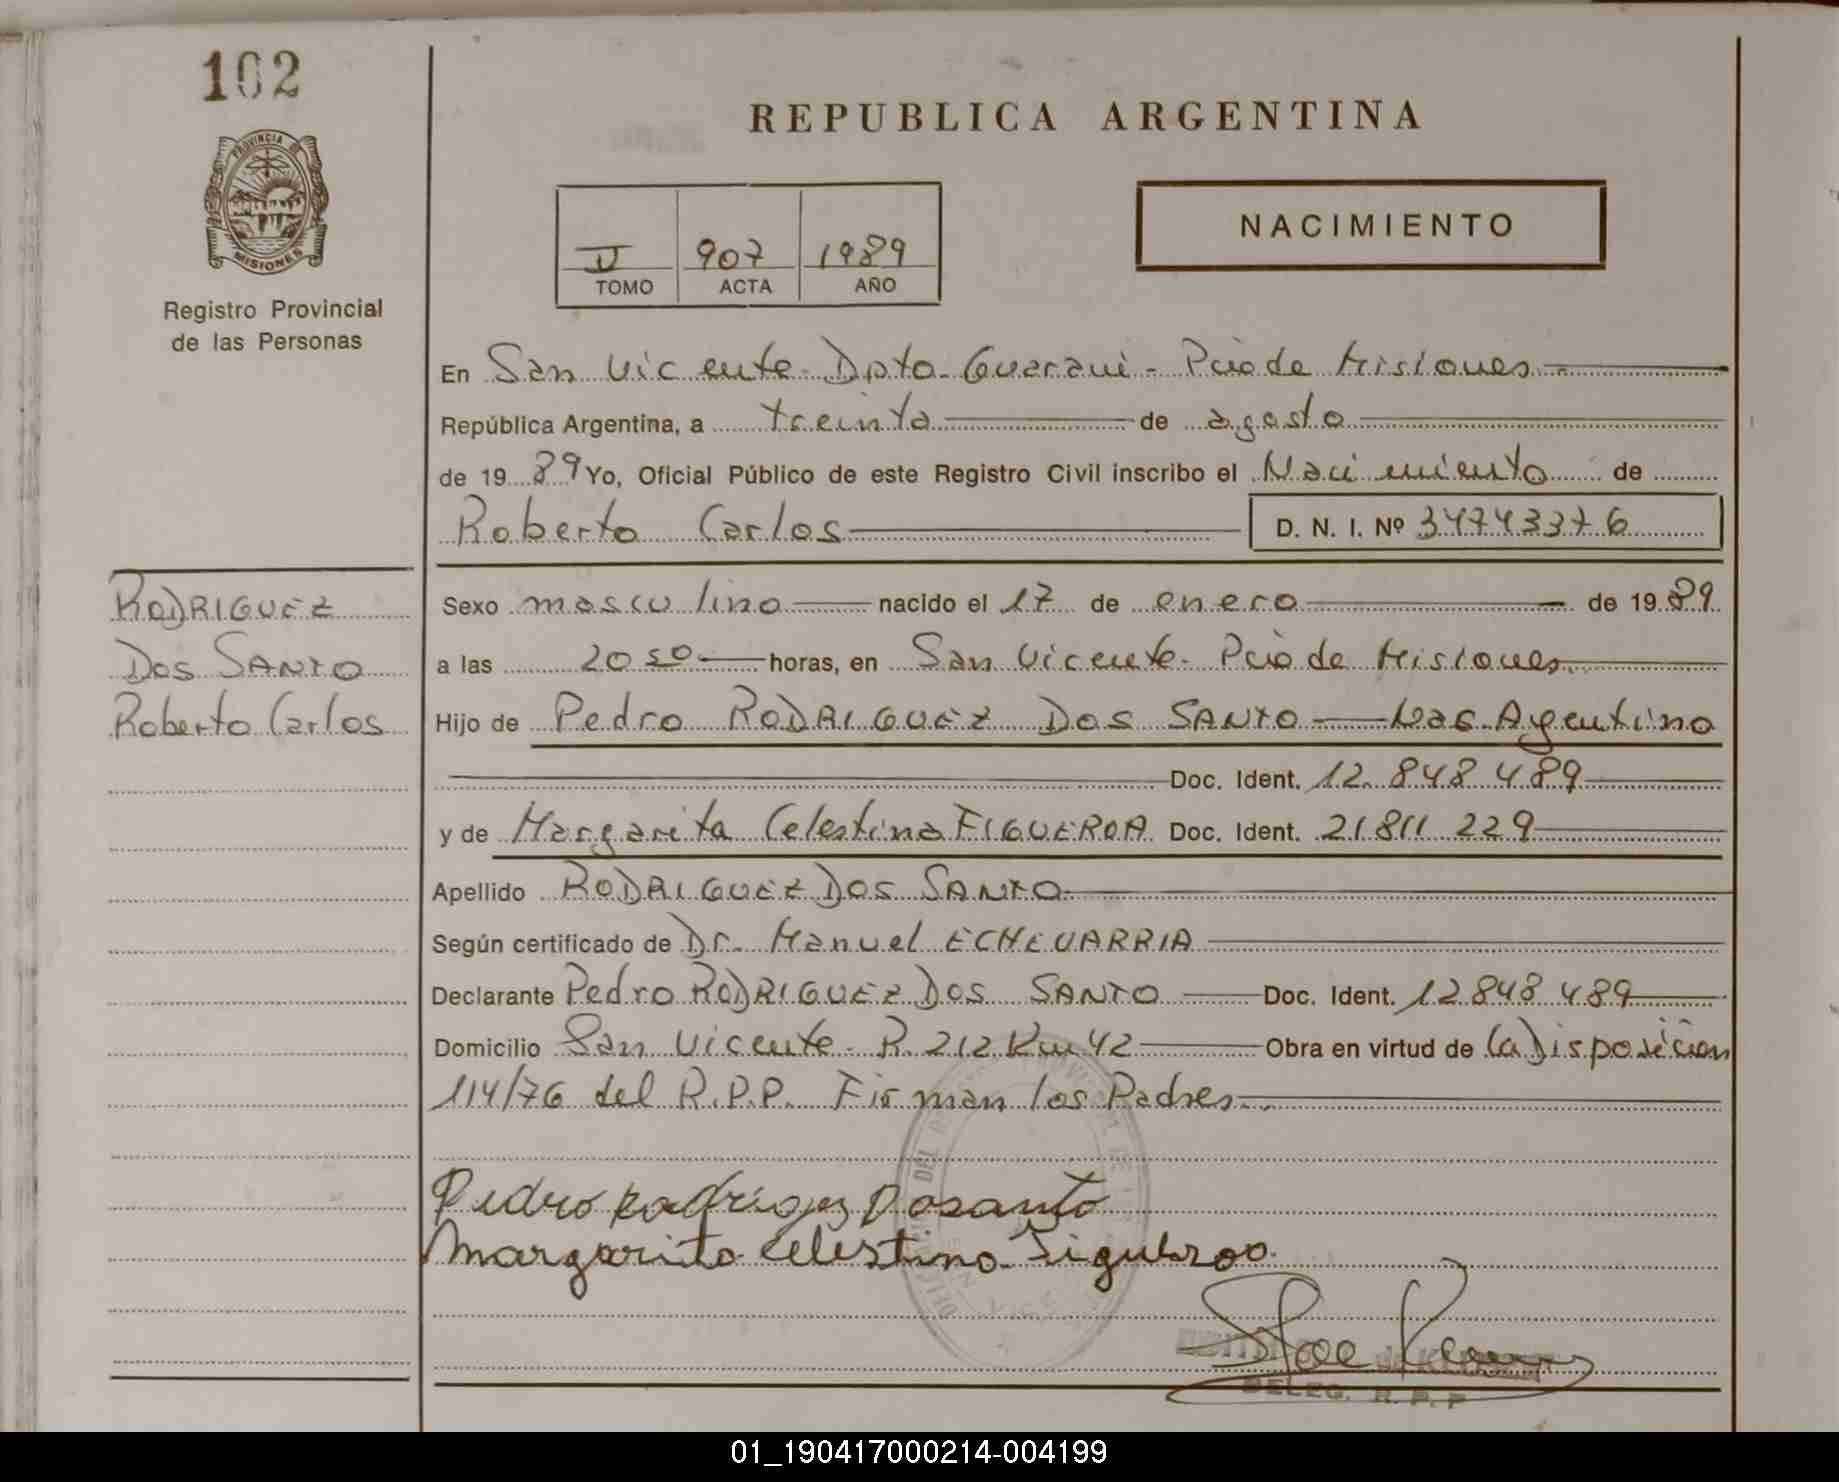 102
PROVINCIA DE
MISIONES
Registro Provincial
de las Personas
REPUBLICA ARGENTINA
907 1989
TOMO ACTA AÑO
NACIMIENTO
En San Vicente Dpto Guarani - Pcia de Misiones
República Argentina, a treinta de agosto
de 19 89 Yo, Oficial Público de este Registro Civil inscribo el Nacimiento de
Roberto Carlos D. N. I. Nº 34743376
RODRIGUEZ
DOS SANTO
Roberto Carlos
Sexo masculino nacido el 17 de enero de 19 89
a las 20 horas, en San Vicente - Pcia de Misiones
Hijo de Pedro RODRIGUEZ DOS SANTO Nac. Argentino
Doc. Ident. 12.848.489
y de Margarita Celestina FIGUEROA Doc. Ident. 21811 229
Apellido RODRIGUEZ DOS SANTO
Según certificado de Dr. Manuel ECHEVARRIA
Declarante Pedro RODRIGUEZ DOS SANTO Doc. Ident. 12.848 489
Domicilio San Vicente - R. 212 Km 42 Obra en virtud de la Disposición
114/76 del R.P.P. Firman los Padres
Pedro Rodriguez Dosanto
Margarita Celestina Figueroa
DELEG. R. P. P
01_190417000214-004199